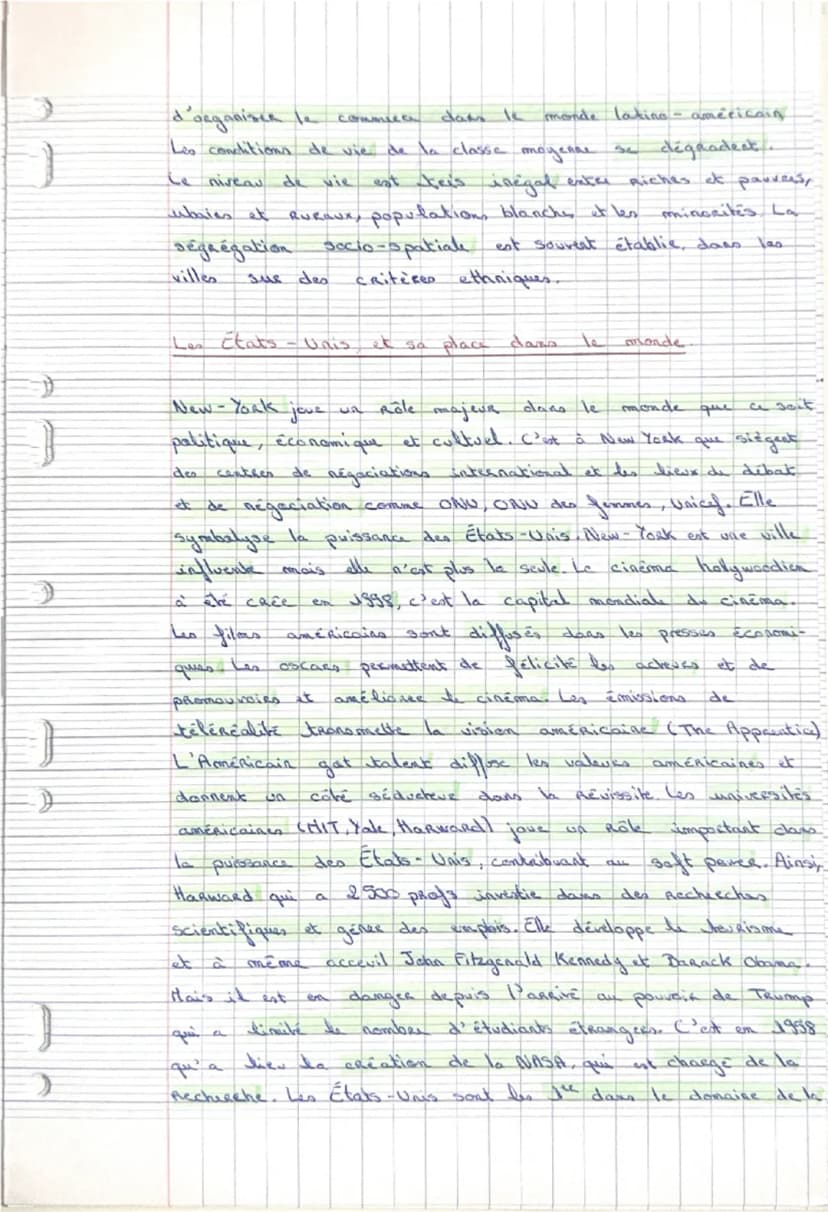 d'organiser le commerce dans le monde latino-américain
Les conditions de vie de la classe moyenne se dégradent.
Le niveau de vie est très inégal entre riches et pauvres,
ubains et ruraux, populations blanches et les minorités. La
ségrégation socio-spatiale est souvent établie, dans les
villes sur des critères ethniques.
Les États-Unis et sa place dans le monde.
New-York joue un rôle majeur dans le monde que ce soit
politique, économique et culturel. C'est à New York que siègent
des centres de négociations international et des lieux de débat
et de négociation comme ONU, ONU des femmes, Unicef. Elle
symbolyse la puissance des États-Unis. New-York est une ville
influente mais elle n'est plus la seule. Le cinéma hollywoodien
à été crée en 1998, c'est la capital mondiale du cinéma.
Les films américains sont diffusés dans les presses économi-
ques. Les oscars permettent de félicité les acteurs et de
promouvoirs et améliorer le cinéma. Les émissions de
téléréalité transmette la vision américaine (The Apprentice)
L'Américain gat talent diffuse les valeurs américaines et
donnent un côté séducteur dans la réussite. Les universités
américaines (MIT, Yale, Harward) joue un rôle important dans
la puissance des États-Unis, contribuant au soft power. Ainsi,
Harward qui a 2500 profs investie dans des recherches
scientifiques et génère des emplois. Elle développe le tourisme
et à même acceuil John Fitzgerald Kennedy et Barack Obama.
Mais il est en danger depuis l'arrivé au pouvoir de Trump
qui a limité le nombre d'étudiants étrangers. C'est en 1958
qu'a lieu la création de la NASA, qui est chargé de la
recherche. Les États-Unis sont les 1er dans le domaine de la